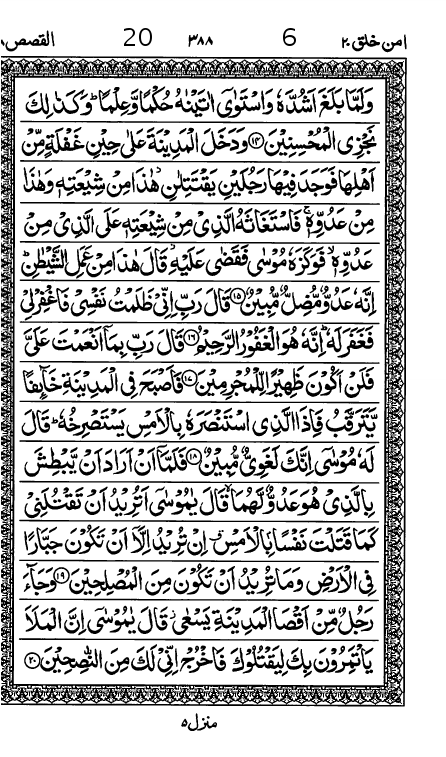 امن خلق ٢٠ 6 ٣٨٨ 20 القصص ٢٨
وَلَمَّا بَلَغَ اَشُدَّهٗ وَاسْتَوٰٓى اٰتَيْنٰهُ حُكْمًا وَّعِلْمًا ؕ وَكَذٰلِكَ
نَجْزِى الْمُحْسِنِيْنَ ﴿١٤﴾ وَدَخَلَ الْمَدِيْنَةَ عَلٰى حِيْنِ غَفْلَةٍ مِّنْ
اَهْلِهَا فَوَجَدَ فِيْهَا رَجُلَيْنِ يَقْتَتِلٰنِ ٭ هٰذَا مِنْ شِيْعَتِهٖ وَهٰذَا
مِنْ عَدُوِّهٖ ۚ فَاسْتَغَاثَهُ الَّذِىْ مِنْ شِيْعَتِهٖ عَلَى الَّذِىْ مِنْ
عَدُوِّهٖ ۙ فَوَكَزَهٗ مُوْسٰى فَقَضٰى عَلَيْهِ ٭ قَالَ هٰذَا مِنْ عَمَلِ الشَّيْطٰنِ ؕ
اِنَّهٗ عَدُوٌّ مُّضِلٌّ مُّبِيْنٌ ﴿١٥﴾ قَالَ رَبِّ اِنِّىْ ظَلَمْتُ نَفْسِىْ فَاغْفِرْ لِىْ
فَغَفَرَ لَهٗ ؕ اِنَّهٗ هُوَ الْغَفُوْرُ الرَّحِيْمُ ﴿١٦﴾ قَالَ رَبِّ بِمَاۤ اَنْعَمْتَ عَلَىَّ
فَلَنْ اَكُوْنَ ظَهِيْرًا لِّلْمُجْرِمِيْنَ ﴿١٧﴾ فَاَصْبَحَ فِى الْمَدِيْنَةِ خَآئِفًا
يَّتَرَقَّبُ فَاِذَا الَّذِى اسْتَنْصَرَهٗ بِالْاَمْسِ يَسْتَصْرِخُهٗ ؕ قَالَ
لَهٗ مُوْسٰٓى اِنَّكَ لَغَوِىٌّ مُّبِيْنٌ ﴿١٨﴾ فَلَمَّاۤ اَنْ اَرَادَ اَنْ يَّبْطِشَ
بِالَّذِىْ هُوَ عَدُوٌّ لَّهُمَا ۙ قَالَ يٰمُوْسٰٓى اَتُرِيْدُ اَنْ تَقْتُلَنِىْ
كَمَا قَتَلْتَ نَفْسًۢا بِالْاَمْسِ ٭ اِنْ تُرِيْدُ اِلَّاۤ اَنْ تَكُوْنَ جَبَّارًا
فِى الْاَرْضِ وَمَا تُرِيْدُ اَنْ تَكُوْنَ مِنَ الْمُصْلِحِيْنَ ﴿١٩﴾ وَجَآءَ
رَجُلٌ مِّنْ اَقْصَا الْمَدِيْنَةِ يَسْعٰى قَالَ يٰمُوْسٰٓى اِنَّ الْمَلَاَ
يَاْتَمِرُوْنَ بِكَ لِيَقْتُلُوْكَ فَاخْرُجْ اِنِّىْ لَكَ مِنَ النّٰصِحِيْنَ ﴿٢٠﴾
منزل ٥